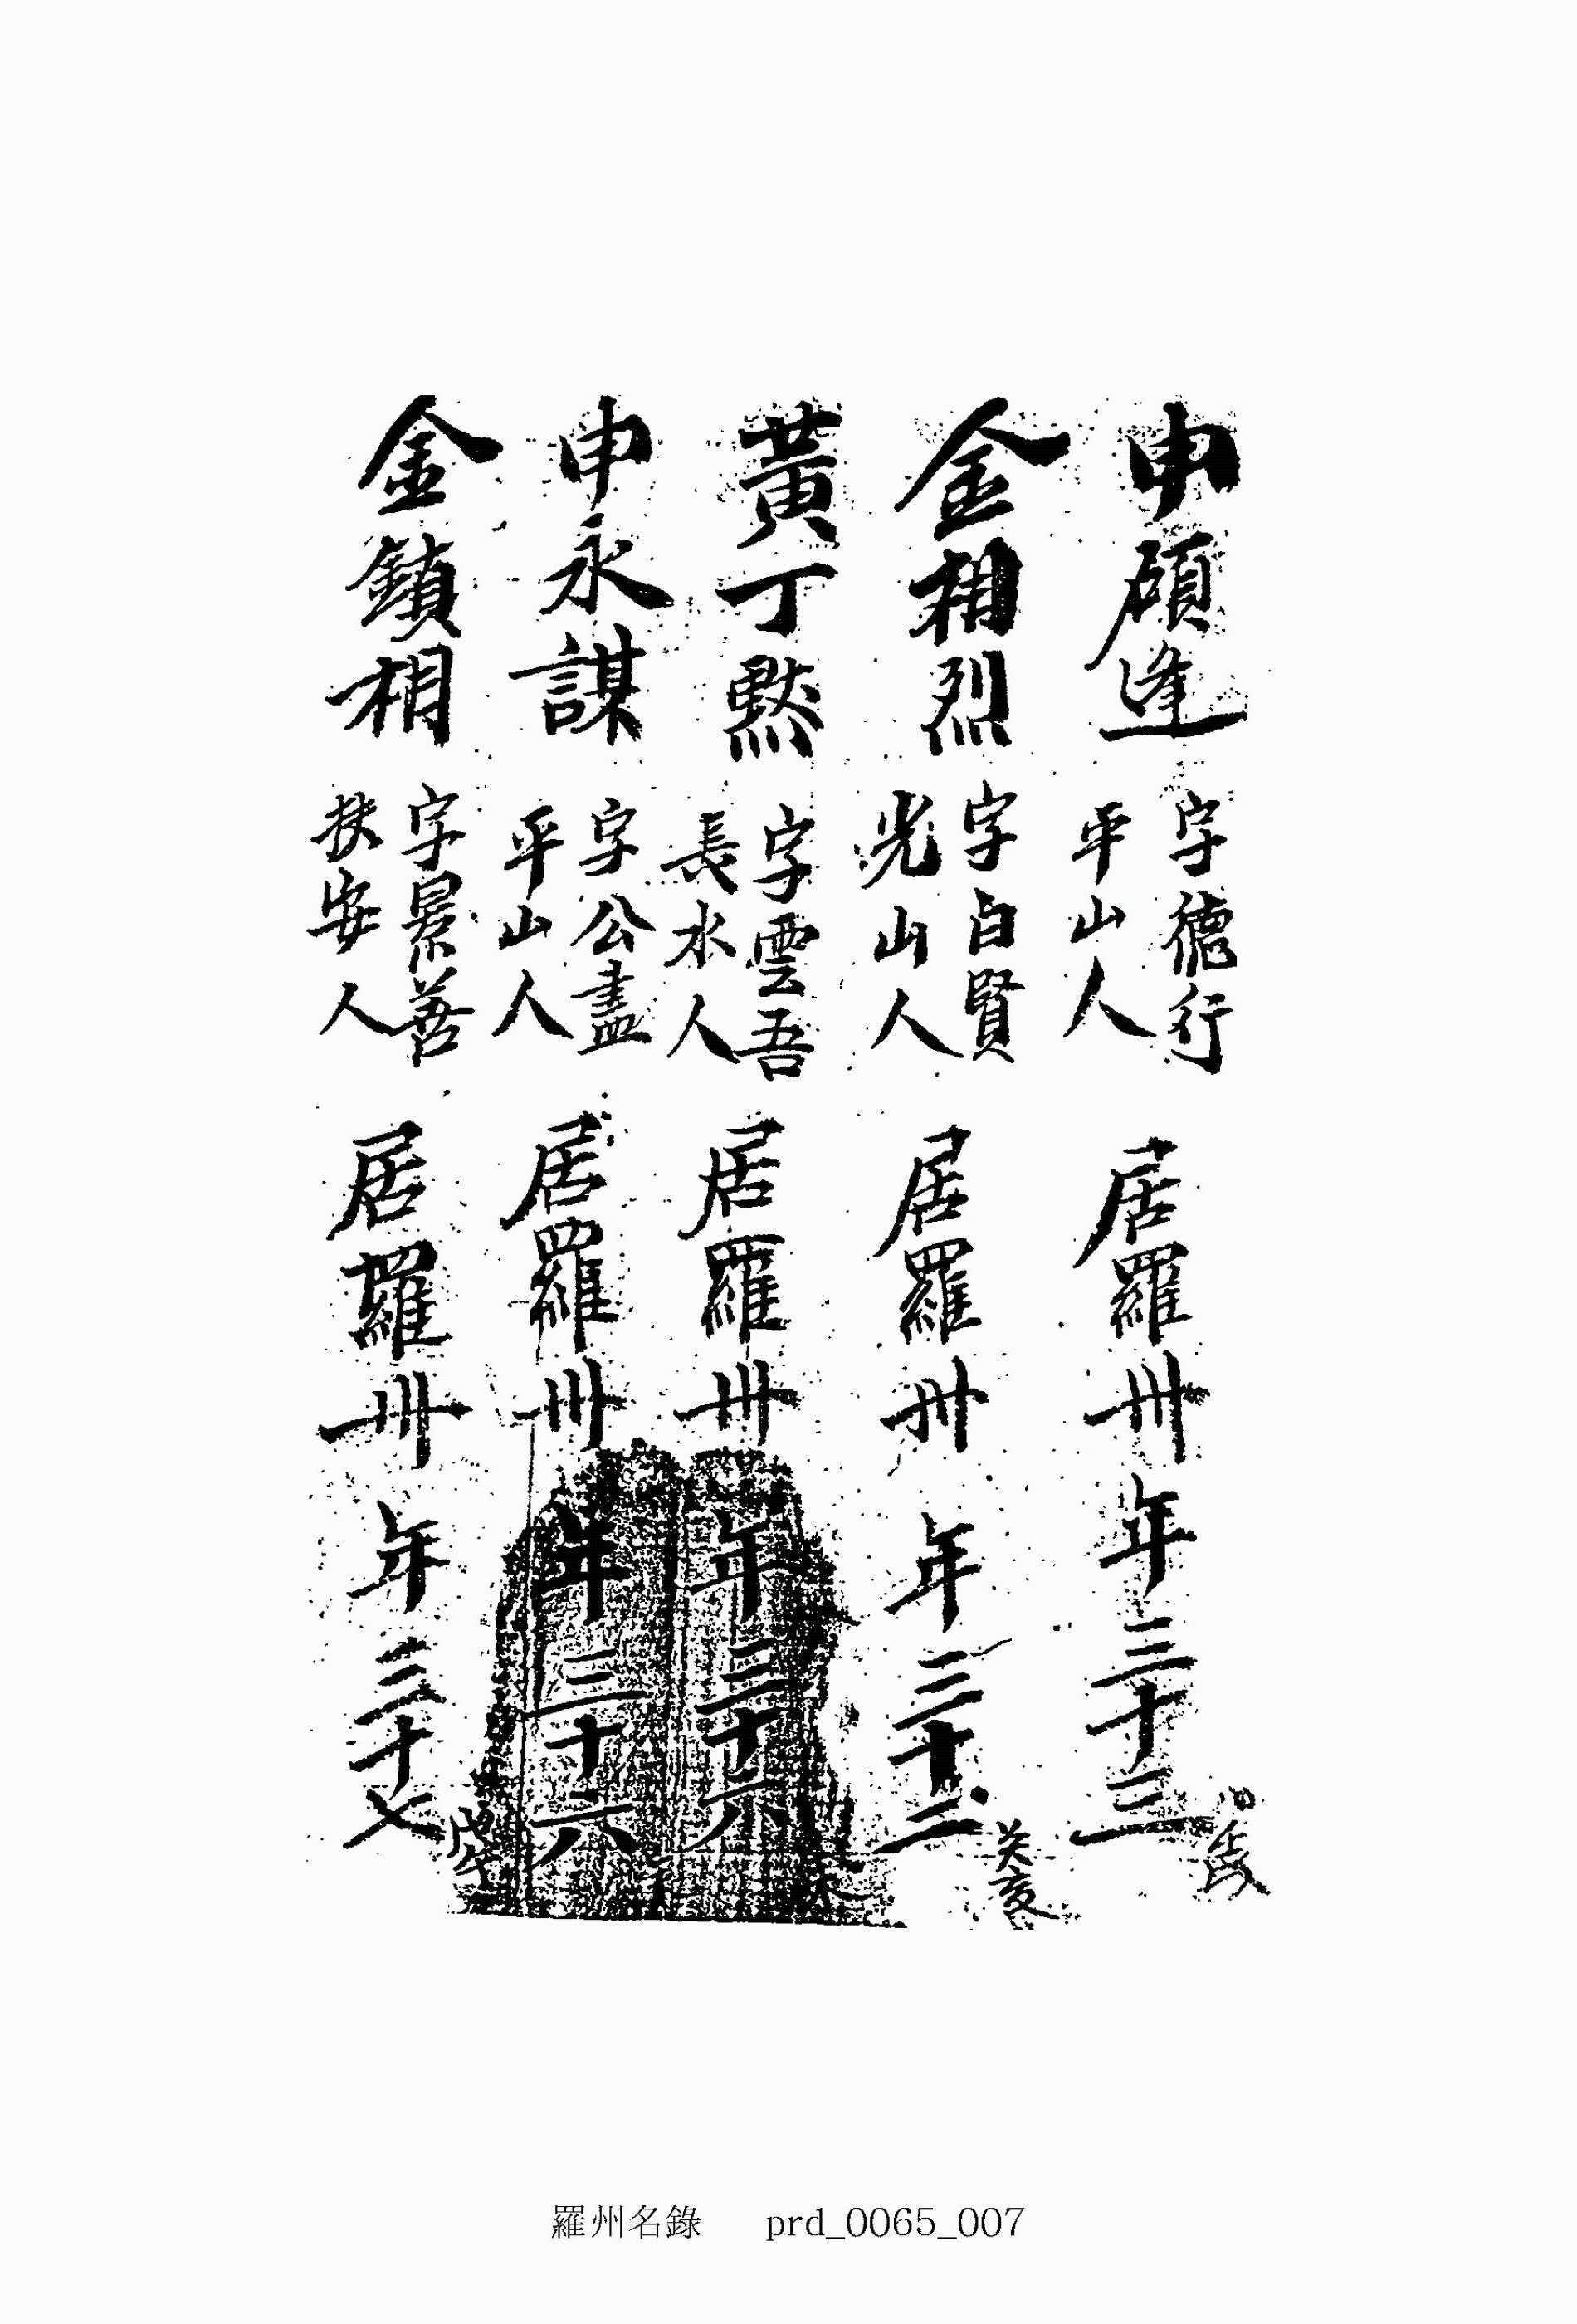 申碩逢 字德行 平山人 居羅州 年三十三
金相烈 字白賢 光山人 居羅州 年三十二 癸亥
黃丁默 字雲吾 長水人 居羅州 年三十六
申永謀 字公盡 平山人 居羅州 年三十六
金鎖相 字景善 扶安人 居羅州 年三十七 戊午
羅州名錄 prd_0065_007